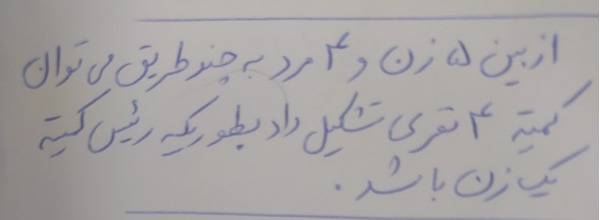 از بین ۵ زن و ۴ مرد به چند طریق می توان
کمیته ۴ نفری تشکیل داد بطوریکه رئیس کمیته
یک زن باشد .